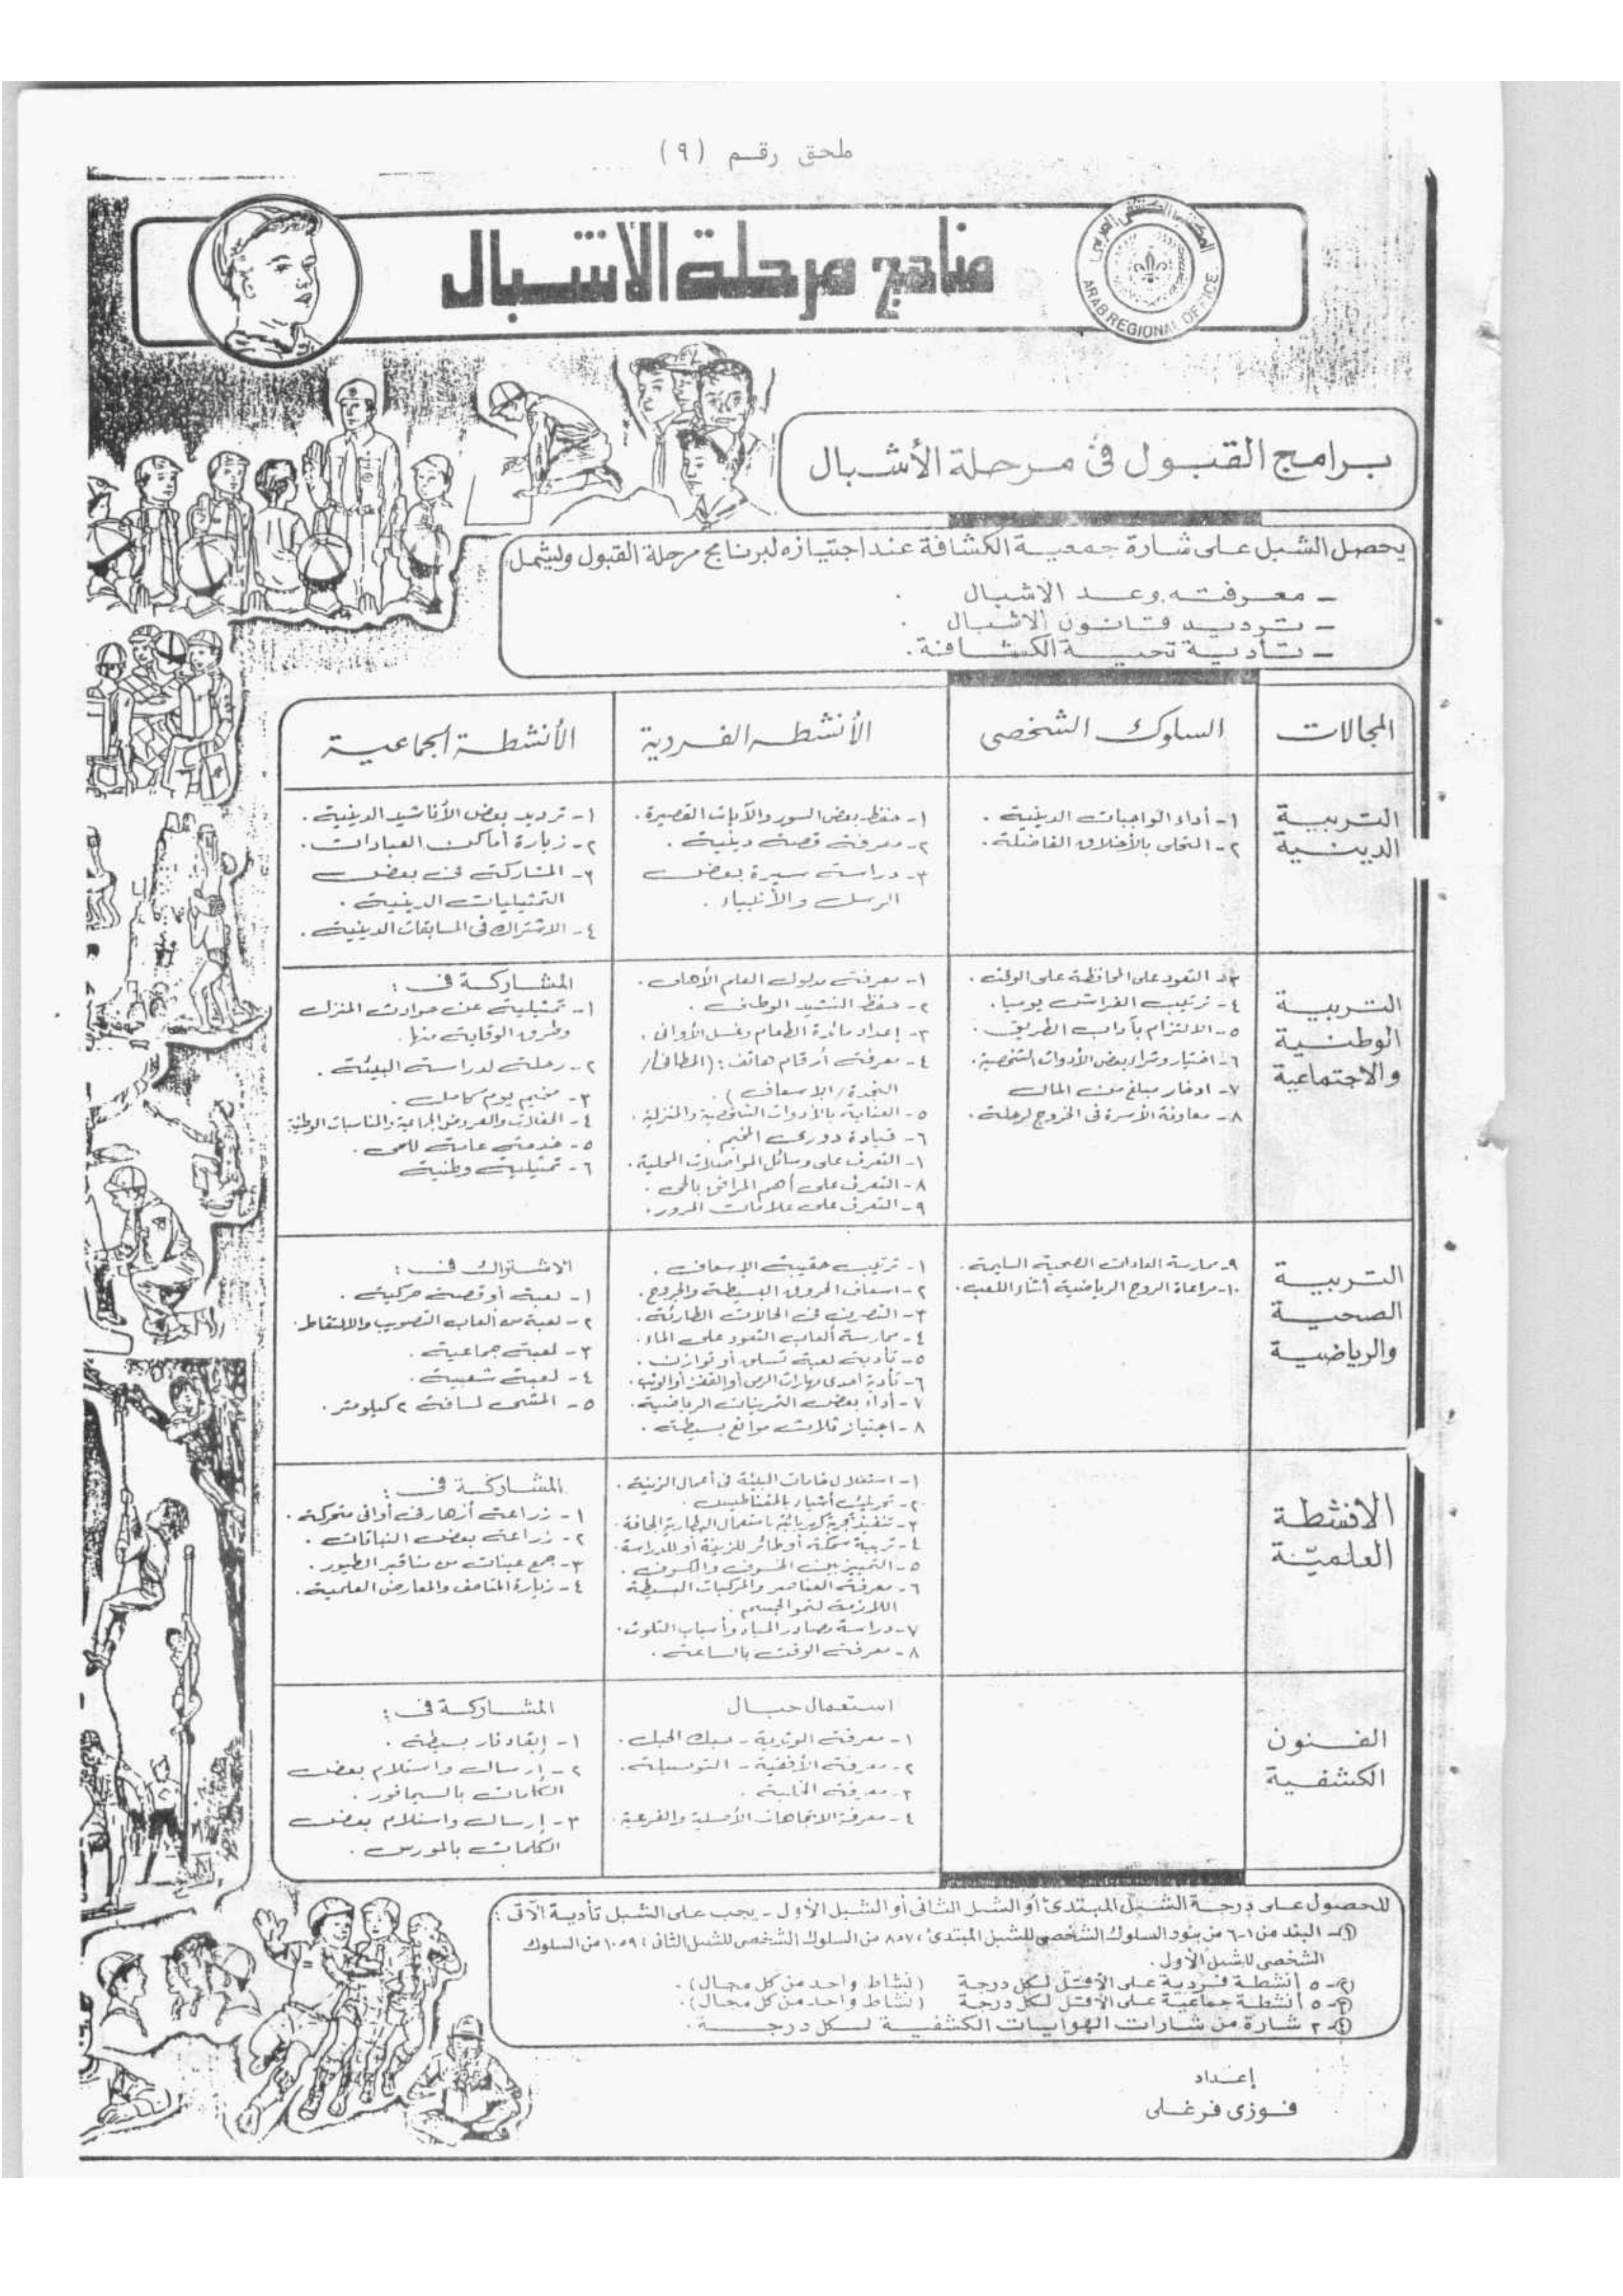 ملحق رقم (٩)
مناهج مرحلة الاشبال
المكتب الكشفى العربى
ARAB REGIONAL OFFICE
برامج القبول فى مرحلة الأشبال
يحصل الشبل على شارة جمعية الكشافة عند اجتيازه لبرنامج مرحلة القبول وليشمل:
- معرفته وعد الاشبال .
- ترديد قانون الاشبال .
- تأدية تحية الكشافة .
المجالات
السلوك الشخصى
الأنشطه الفردية
الأنشطة الجماعية
التربية
الدينية
١- أداء الواجبات الدينية .
٢- التحلى بالأخلاق الفاضلة .
١- حفظ بعض السور والآيات القصيرة .
٢- معرفة قصة دينية .
٣- دراسة سيرة بعض
الرسل والأنبياء .
١- ترديد بعض الأناشيد الدينية .
٢- زيارة أماكن العبادات .
٣- المشاركة فى بعض
التمثيليات الدينية .
٤- الاشتراك فى المسابقات الدينية .
التربية
الوطنية
والاجتماعية
٣- التعود على المحافظة على الوقت .
٤- ترتيب الفراش يوميا .
٥- الالتزام بآداب الطريق .
٦- اختيار وشراء بعض الأدوات الشخصية .
٧- ادخار مبلغ من المال
٨- معاونة الأسرة فى الخروج لرحلة .
١- معرفة مدلول العلم الأهلى .
٢- حفظ النشيد الوطنى .
٣- إعداد مائدة الطعام وغسل الأوانى .
٤- معرفة أرقام هاتف : (المطافئ/
النجدة / الإسعاف) .
٥- العناية بالأدوات الشخصية والمنزلية .
٦- قيادة دورى المخيم .
١- التعرف على وسائل المواصلات المحلية .
٨- التعرف على أهم المرافق بالحى .
٩- التعرف على علامات المرور .
المشاركة فى :
١- تمثيلية عن حوادث المنزل
وطرق الوقاية منها .
٢- رحلة لدراسة البيئة .
٣- مخيم يوم كامل .
٤- الحفلات والعروض الجماعية والمناسبات الوطنية
٥- خدمة عامة للحى .
٦- تمثيلية وطنية
التربية
الصحية
والرياضية
٩- ممارسة العادات الصحية السليمة .
١٠- مراعاة الروح الرياضية أثناء اللعب .
١- ترتيب حقيبة الإسعاف .
٢- اسعاف الحروق البسيطة والجروح .
٣- التصرف فى الحالات الطارئة .
٤- ممارسة ألعاب التعود على الماء .
٥- تأدية لعبة تسلق أو توازن .
٦- تأدية احدى مهارات الرمى أو القفز أو الوثب .
٧- أداء بعض التمرينات الرياضية .
٨- اجتياز ثلاث موانع بسيطة .
الاشتراك فى :
١- لعبة أو قصة حركية .
٢- لعبة من ألعاب التصويب والالتقاط .
٣- لعبة جماعية .
٤- لعبة شعبية .
٥- المشى لمسافة ٢ كيلومتر .
الانشطة
العلميّة
١- استغلال خامات البيئة فى أعمال الزينة .
٢- تحريك أشياء بالمغناطيس .
٣- تنفيذ تجربة كهربائية باستعمال البطارية الجافة .
٤- تربية سمكة أو طائر للزينة أو للدراسة .
٥- التمييز بين الخسوف والكسوف .
٦- معرفة العناصر والمركبات البسيطة
اللازمة لنمو الجسم .
٧- دراسة مصادر المياه وأسباب التلوث .
٨- معرفة الوقت بالساعة .
المشاركة فى :
١- زراعة أزهار فى أوانى متحركة .
٢- زراعة بعض النباتات .
٣- جمع عينات من مناقير الطيور .
٤- زيارة المتاحف والمعارض العلمية .
الفنون
الكشفية
استعمال حبال
١- معرفة الوتدية - مسك الحبل .
٢- معرفة الأفقية - التوصيلة .
٣- معرفة الخابية .
٤- معرفة الاتجاهات الأصلية والفرعية .
المشاركة فى :
١- إيقاد نار بسيطة .
٢- إرسال واستلام بعض
الكلمات بالسيمافور .
٣- إرسال واستلام بعض
الكلمات بالمورس .
للحصول على درجة الشبل المبتدئ أو الشبل الثانى أو الشبل الأول - يجب على الشبل تأدية الآتى :
١- البند من ١-٦ من بنود السلوك الشخصى للشبل المبتدئ ، ٨،٧ من السلوك الشخصى للشبل الثانى ، ١٠،٩ من السلوك
الشخصى للشبل الأول .
٢- ٥ أنشطة فردية على الأقل لكل درجة (نشاط واحد من كل مجال) .
٣- ٥ أنشطة جماعية على الأقل لكل درجة (نشاط واحد من كل مجال) .
٤- ٢ شارة من شارات الهوايات الكشفية لكل درجة .
إعداد
فوزى فرغلى